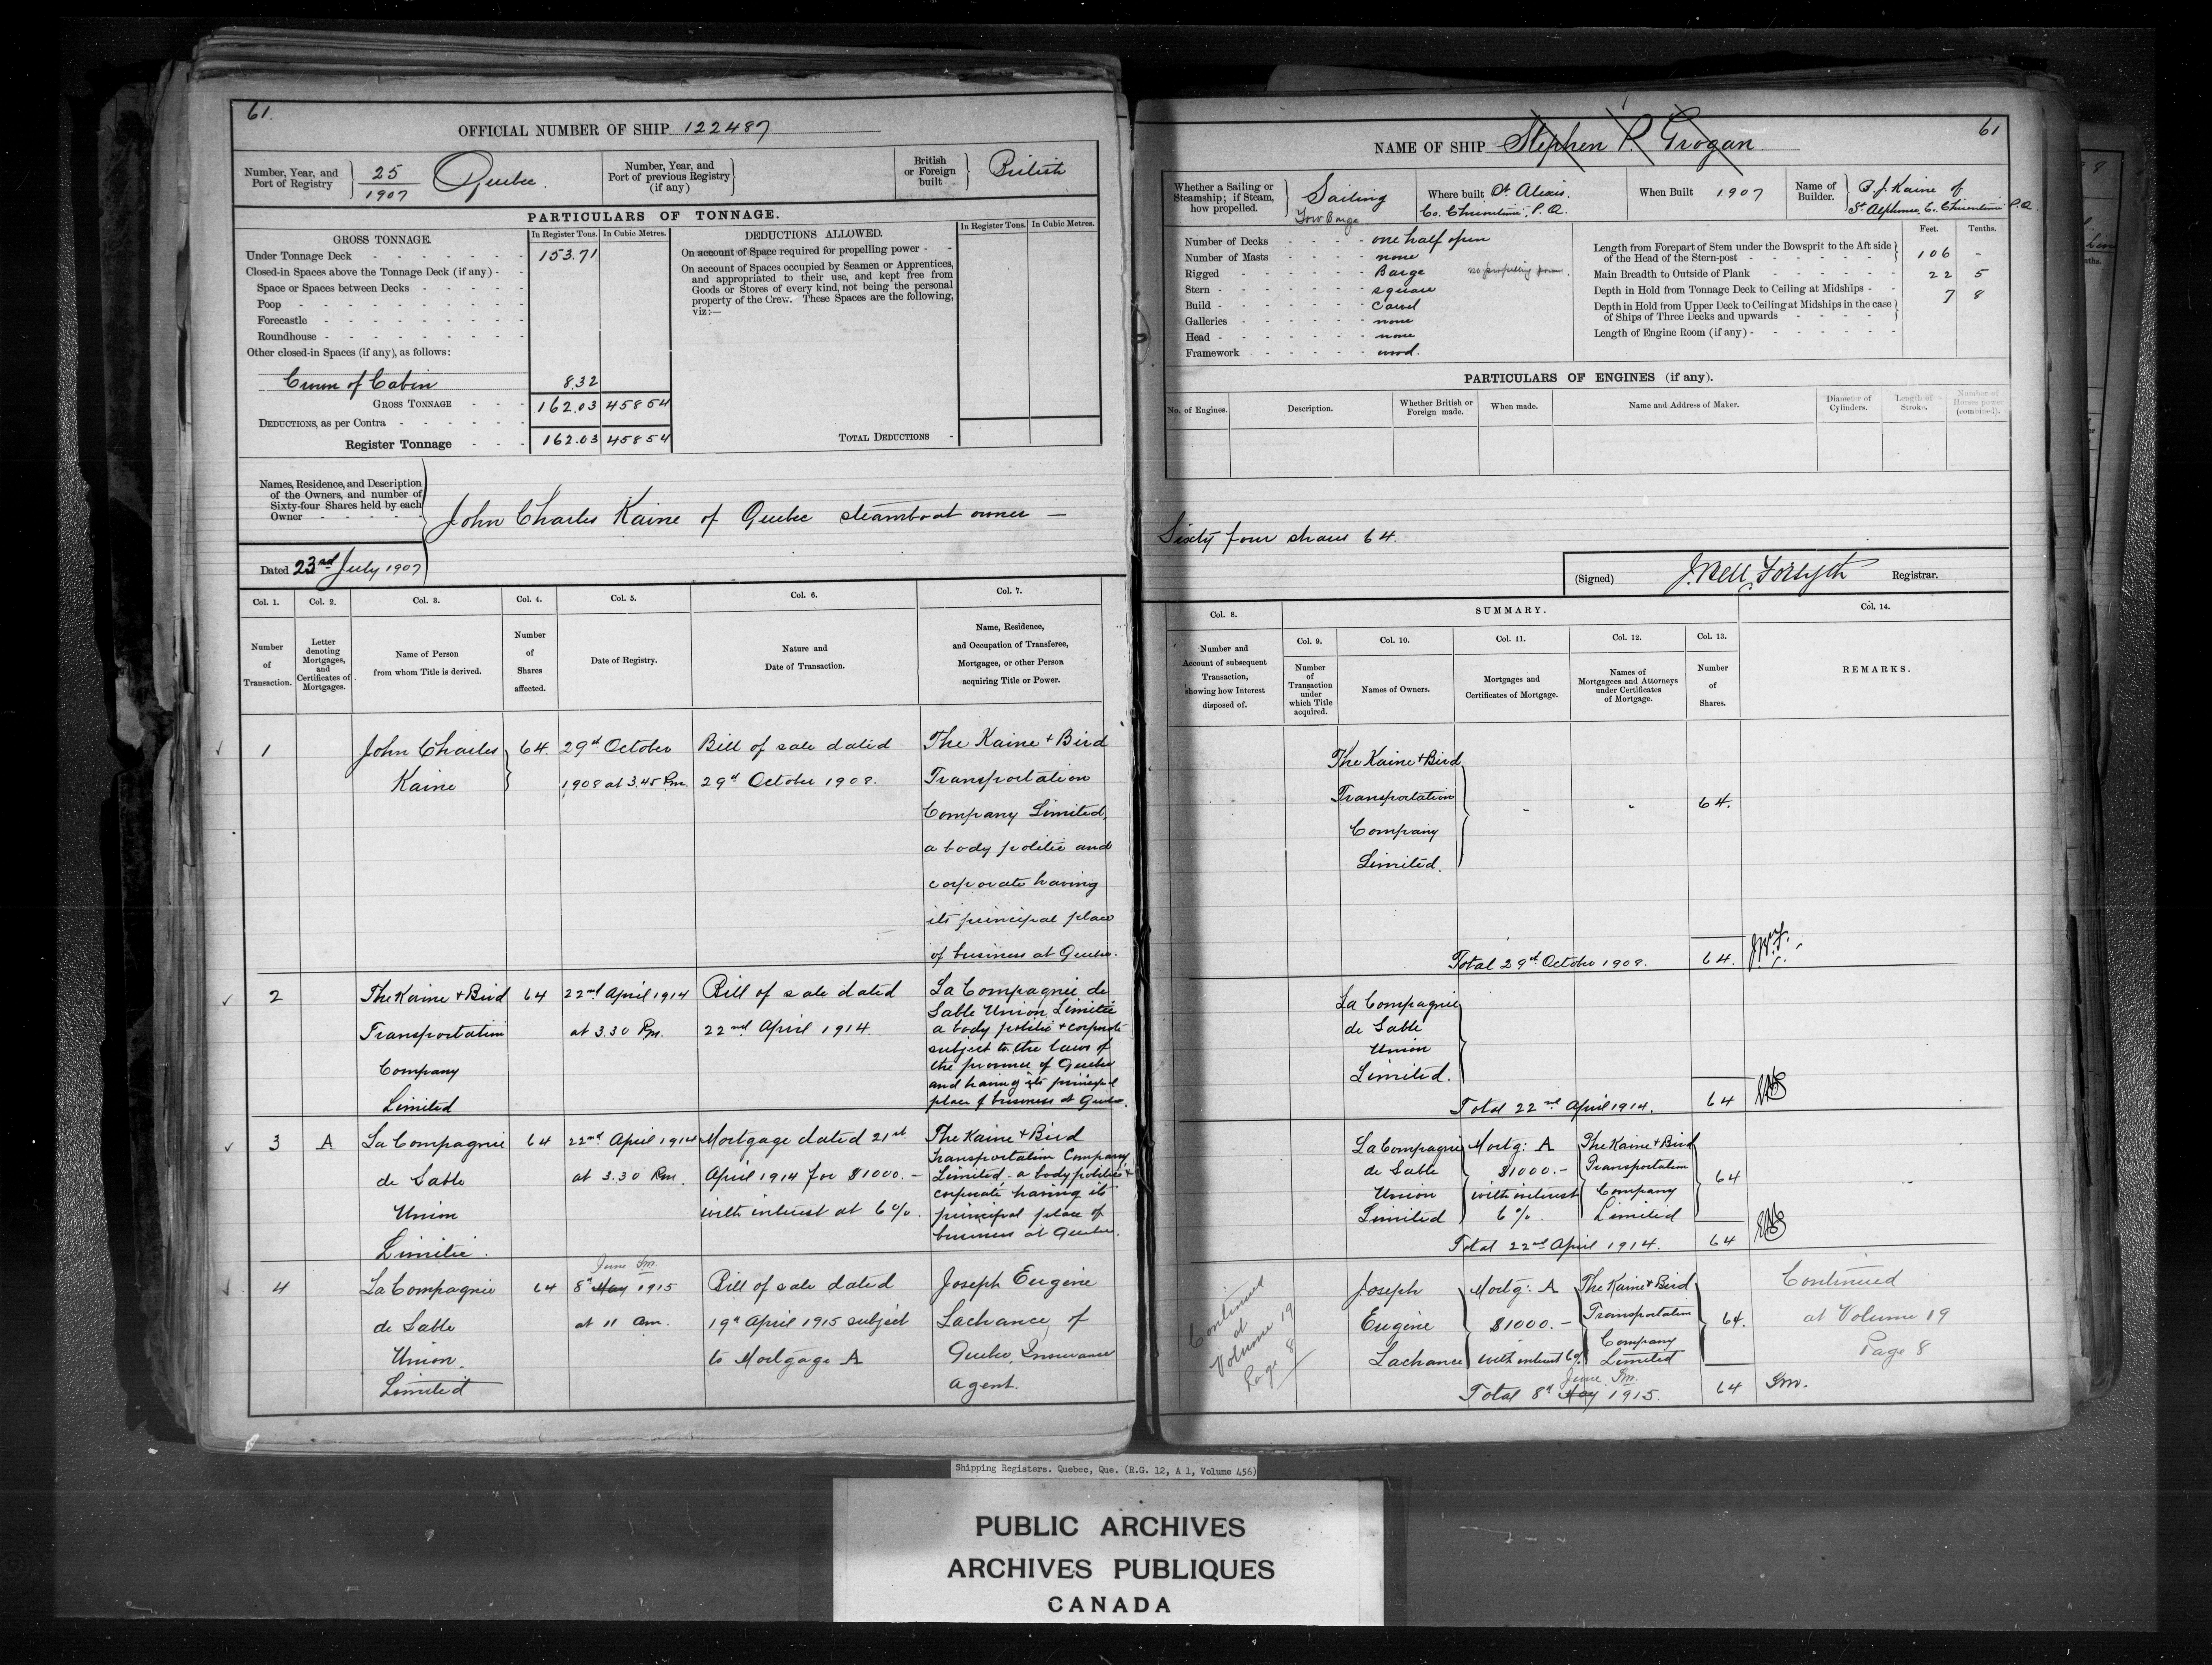 61.
OFFICIAL NUMBER OF SHIP 122487
Number, Year, and Port of Registry } 25/1907 Quebec.
Number, Year, and Port of previous Registry (if any) }
British or Foreign built } British
PARTICULARS OF TONNAGE.
GROSS TONNAGE. In Register Tons. In Cubic Metres.
Under Tonnage Deck - - - 153.71
Closed-in Spaces above the Tonnage Deck (if any) -
Space or Spaces between Decks - - -
Poop - - -
Forecastle - - -
Roundhouse - - -
Other closed-in Spaces (if any), as follows:
Crown of Cabin 8.32
GROSS TONNAGE - - - 162.03 458 54
DEDUCTIONS, as per Contra - - -
Register Tonnage - - - 162.03 458 54
DEDUCTIONS ALLOWED. In Register Tons. In Cubic Metres.
On account of Space required for propelling power - -
On account of Spaces occupied by Seamen or Apprentices,
and appropriated to their use, and kept free from
Goods or Stores of every kind, not being the personal
property of the Crew. These Spaces are the following,
viz:—
TOTAL DEDUCTIONS -
Names, Residence, and Description
of the Owners, and number of
Sixty-four Shares held by each
Owner - - -
John Charles Kaine of Quebec steamboat owner —
Dated 23rd July 1907
Col. 1. Col. 2. Col. 3. Col. 4. Col. 5. Col. 6. Col. 7.
Number of Transaction.
Letter denoting Mortgages, and Certificates of Mortgages.
Name of Person from whom Title is derived.
Number of Shares affected.
Date of Registry.
Nature and Date of Transaction.
Name, Residence, and Occupation of Transferee, Mortgagee, or other Person acquiring Title or Power.
1 John Charles 64. 29th October Bill of sale dated The Kaine & Bird
Kaine 1908 at 3.45 Pm. 29th October 1908. Transportation
Company Limited,
a body politic and
corporate having
its principal place
of business at Quebec.
2 The Kaine & Bird 64 22nd April 1914 Bill of sale dated La Compagnie de
Sable Union, Limitée
Transportation at 3.30 Pm. 22nd April 1914. a body politic & corporate
subject to the laws of
Company the province of Quebec
and having its principal
Limited place of business at Quebec.
3 A La Compagnie 64 22nd April 1914 Mortgage dated 21st The Kaine & Bird
Transportation Company
de Sable at 3.30 Pm. April 1914 for $1000.— Limited - a body politic &
corporate having its
Union with interest at 6%. principal place of
business at Quebec.
Limitée.
June
4 La Compagnie 64 8th May 1915 Bill of sale dated Joseph Eugène
de Sable at 11 am. 19th April 1915 subject Lachance, of
Union to Mortgage A Quebec, Insurance
Limited agent.
61
NAME OF SHIP Stephen R Grogan
Whether a Sailing or Steamship; if Steam, how propelled. } Sailing
Tow Barge
Where built St Alexis.
Co. Chicoutimi, P.Q.
When Built 1907
Name of Builder. } B. J. Kaine of
St Alphonse, Co. Chicoutimi P.Q.
Number of Decks - - - one half open
Number of Masts - - - none
Rigged - - - Barge no propelling power.
Stern - - - square
Build - - - Carvel
Galleries - - - none
Head - - - none
Framework - - - wood.
Feet. Tenths.
Length from Forepart of Stem under the Bowsprit to the Aft side
of the Head of the Stern-post - - - 106 -
Main Breadth to Outside of Plank - - - 22 5
Depth in Hold from Tonnage Deck to Ceiling at Midships - - 7 8
Depth in Hold from Upper Deck to Ceiling at Midships in the case
of Ships of Three Decks and upwards - - -
Length of Engine Room (if any) - - -
PARTICULARS OF ENGINES (if any).
No. of Engines. Description. Whether British or Foreign made. When made. Name and Address of Maker. Diameter of Cylinders. Length of Stroke. Number of Horses power (combined).
Sixty four shares 64.
(Signed) J. Bell Forsyth Registrar.
Col. 8. SUMMARY. Col. 14.
Col. 9. Col. 10. Col. 11. Col. 12. Col. 13.
Number and Account of subsequent Transaction, showing how Interest disposed of.
Number of Transaction under which Title acquired.
Names of Owners.
Mortgages and Certificates of Mortgage.
Names of Mortgagees and Attorneys under Certificates of Mortgage.
Number of Shares.
REMARKS.
The Kaine & Bird
Transportation - - 64.
Company
Limited.
Total 29th October 1908. 64.
La Compagnie
de Sable
Union
Limited.
Total 22nd April 1914. 64
La Compagnie Mortg: A The Kaine & Bird
de Sable $1000.— Transportation 64
Union with interest Company
Limited 6%. Limited
Total 22nd April 1914. 64
Joseph Mortg: A The Kaine & Bird Continued
Eugène $1000.— Transportation 64. at Volume 19
Company Page 8
Lachance with interest 6% Limited
June
Total 8th May 1915. 64
Continued
at
Volume 19
Page 8
Shipping Registers. Quebec, Que. (R.G. 12, A 1, Volume 456)
PUBLIC ARCHIVES
ARCHIVES PUBLIQUES
CANADA